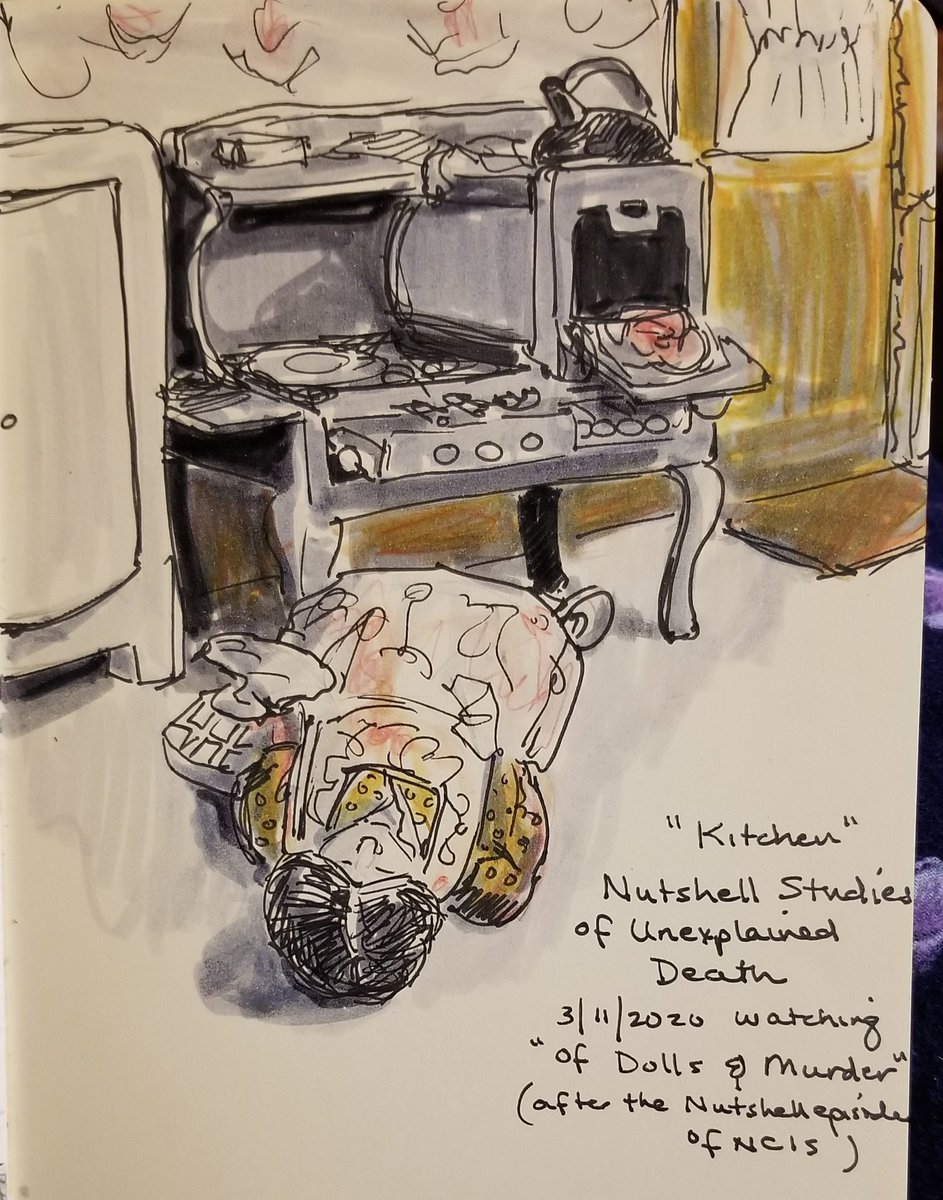 "Kitchen"
Nutshell Studies
of Unexplained
Death
3/11/2020 watching
"of Dolls & Murder"
(after the Nutshell episode
of NCIS)